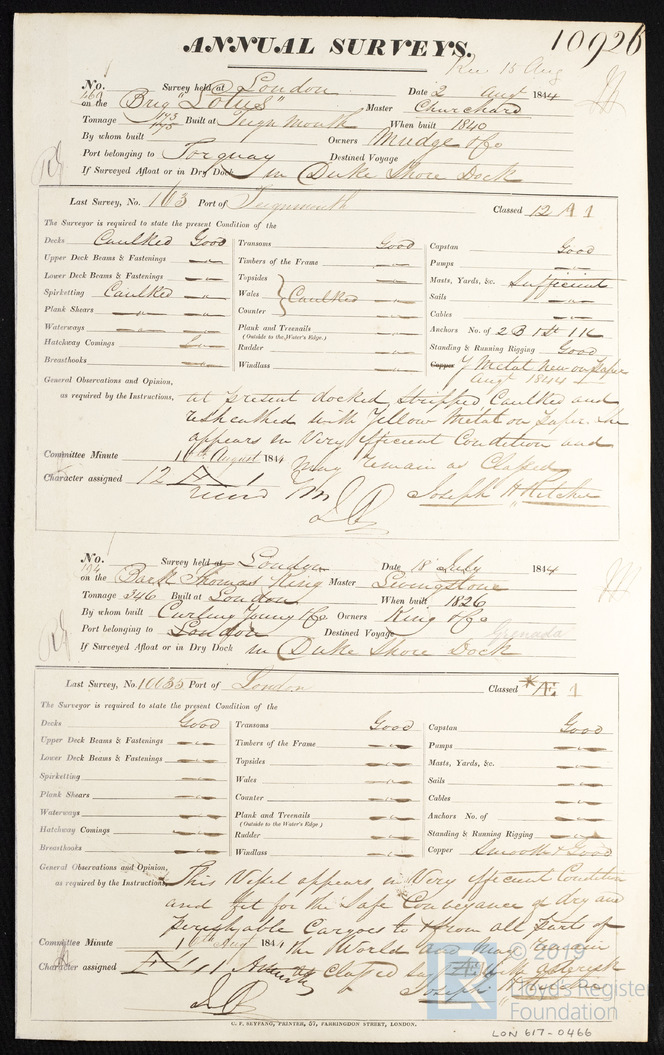 ANNUAL SURVEYS.
10926
Rec. 15 Aug
No. 469 Survey held at London Date 2 Augt 1844
on the Brig "Lotus" Master Churchard
Tonnage 173 175 Built at Teignmouth When built 1840
By whom built Owners Mudge & Co
Port belonging to Torquay Destined Voyage
If Surveyed Afloat or in Dry Dock in Duke Shore Dock
Last Survey, No. 163 Port of Teignmouth Classed 12 A 1
The Surveyor is required to state the present Condition of the
Decks Caulked Good Transoms Good Capstan Good
Upper Deck Beams & Fastenings " Timbers of the Frame " Pumps "
Lower Deck Beams & Fastenings " Topsides " Masts, Yards, &c. Sufficient
Spirketting Caulked " Wales Caulked " Sails "
Plank Shears " " Counter " Cables "
Waterways " " Plank and Treenails " Anchors No. of 2 B 1 St 1 K
(Outside to the Water's Edge.)
Hatchway Comings " Rudder " Standing & Running Rigging Good
Breasthooks " Windlass " Copper Y Metal New on Paper
Augt 1844
General Observations and Opinion,
as required by the Instructions, at present docked, Stripped Caulked and
resheathed with Yellow Metal on Paper. She
appears in Very efficient Condition and
Committee Minute 16th August 1844 May remain as Classed
Character assigned 12 A 1 Joseph H Ritchie
No. 194 Survey held at London Date 18 July 1844
on the Bark Thomas King Master Livingstone
Tonnage 346 Built at London When built 1826
By whom built Curling Young & Co Owners King & Co
Port belonging to London Destined Voyage Grenada
If Surveyed Afloat or in Dry Dock in Duke Shore Dock
Last Survey, No. 10035 Port of London Classed * Æ 1
The Surveyor is required to state the present Condition of the
Decks Good Transoms Good Capstan Good
Upper Deck Beams & Fastenings " Timbers of the Frame " Pumps "
Lower Deck Beams & Fastenings " Topsides " Masts, Yards, &c. "
Spirketting " Wales " Sails "
Plank Shears " Counter " Cables "
Waterways " Plank and Treenails " Anchors No. of "
(Outside to the Water's Edge.)
Hatchway Comings " Rudder " Standing & Running Rigging "
Breasthooks " Windlass " Copper Smooth & Good
General Observations and Opinion,
as required by the Instructions, This Vessel appears in Very efficient Condition
and fit for the Safe Conveyance of dry and
perishable Cargoes to & from all parts of
Committee Minute 16th Augt 1844 the World and may remain
Character assigned Æ 1 Classed Æ with asterisk
Joseph H Ritchie
© 2019
LR
Lloyd's Register
Foundation
C. F. SEYFANG, PRINTER, 57, FARRINGDON STREET, LONDON.
LON 617-0466